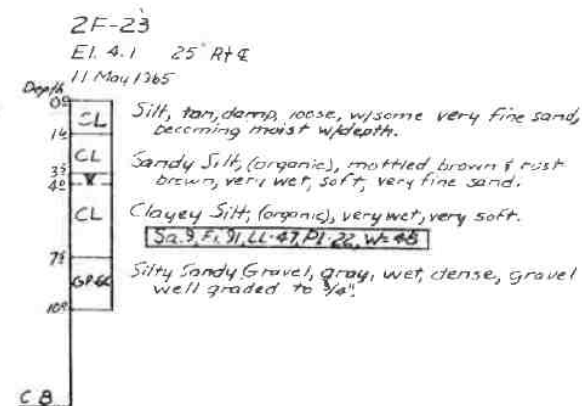 2F-23
El. 4.1 25' Rt ℄
11 May 1965
Depth
0.0
CL Silt, tan, damp, loose, w/some very fine sand,
becoming moist w/depth.
1.6
CL Sandy Silt, (organic), mottled brown & rust
brown, very wet, soft, very fine sand.
4.0
CL Clayey Silt, (organic), very wet, very soft.
Sa. 9, Fi. 91, LL-47, PI-22, W=45
GP-GC Silty Sandy Gravel, gray, wet, dense, gravel
well graded to 3/4".
10.0
C B